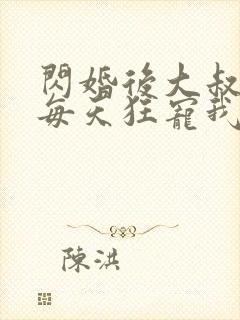 閃婚後大叔
每天狂寵我
陳洪